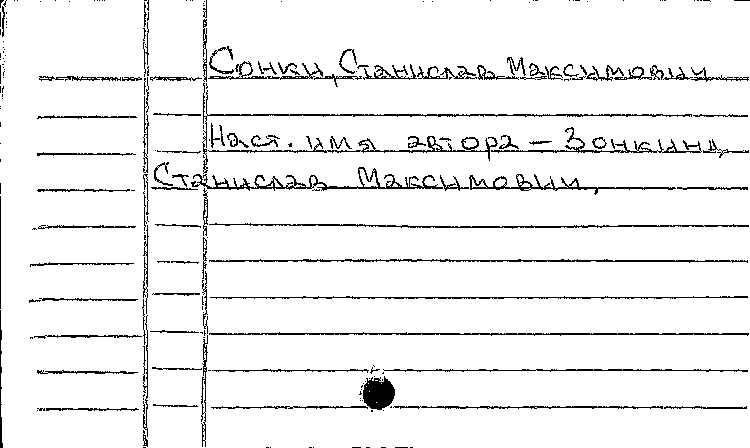 Сонки, Станислав Максимович
Наст. имя автора — Зонкинд,
Станислав Максимович.